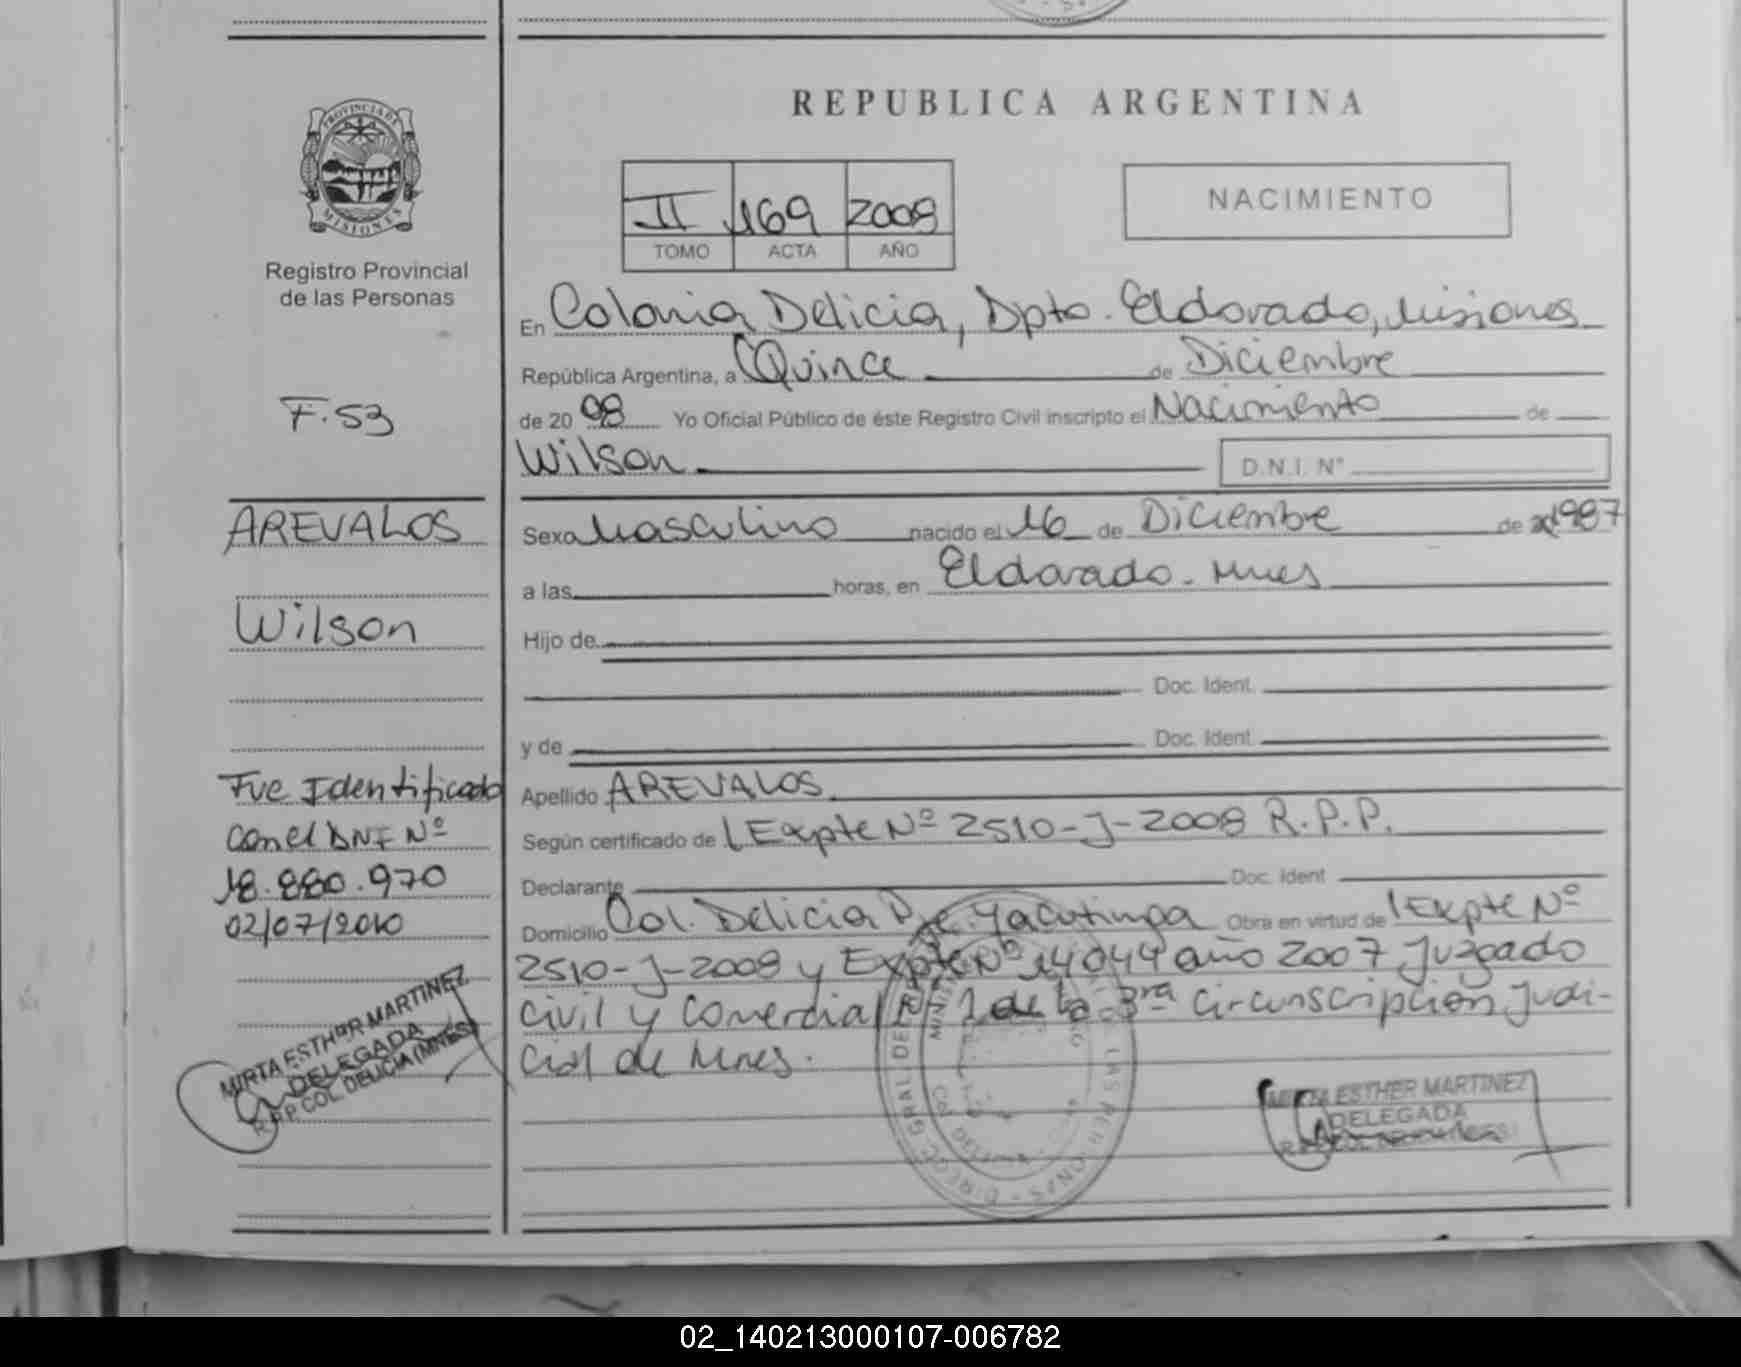 REPUBLICA ARGENTINA
PROVINCIA DE
MISIONES
Registro Provincial
de las Personas
II 169 2008
TOMO ACTA AÑO
NACIMIENTO
En Colonia Delicia, Dpto. Eldorado, Misiones
República Argentina, a Quince de Diciembre
F.53
de 20 08 Yo Oficial Público de éste Registro Civil inscripto el Nacimiento de
Wilson
D.N.I. N°
AREVALOS
Sexo Masculino nacido el 16 de Diciembre de 1987
a las horas, en Eldorado. Mnes
Wilson
Hijo de
Doc. Ident.
y de Doc. Ident.
Fue Identificado
con el DNI Nº
18.880.970
02/07/2010
Apellido AREVALOS
Según certificado de Expte Nº 2510-J-2008 R.P.P.
Declarante Doc. Ident
Domicilio Col. Delicia Yacutinga Obra en virtud de Expte Nº
2510-J-2008 y Expte Nº 14044 año 2007 Juzgado
Civil y Comercial Nº 1 de la 3ra Circunscripción Judi-
cial de Mnes.
MIRTA ESTHER MARTINEZ
DELEGADA
R.P.P. COL. DELICIA (MNES)
MIRTA ESTHER MARTINEZ
DELEGADA
02_140213000107-006782